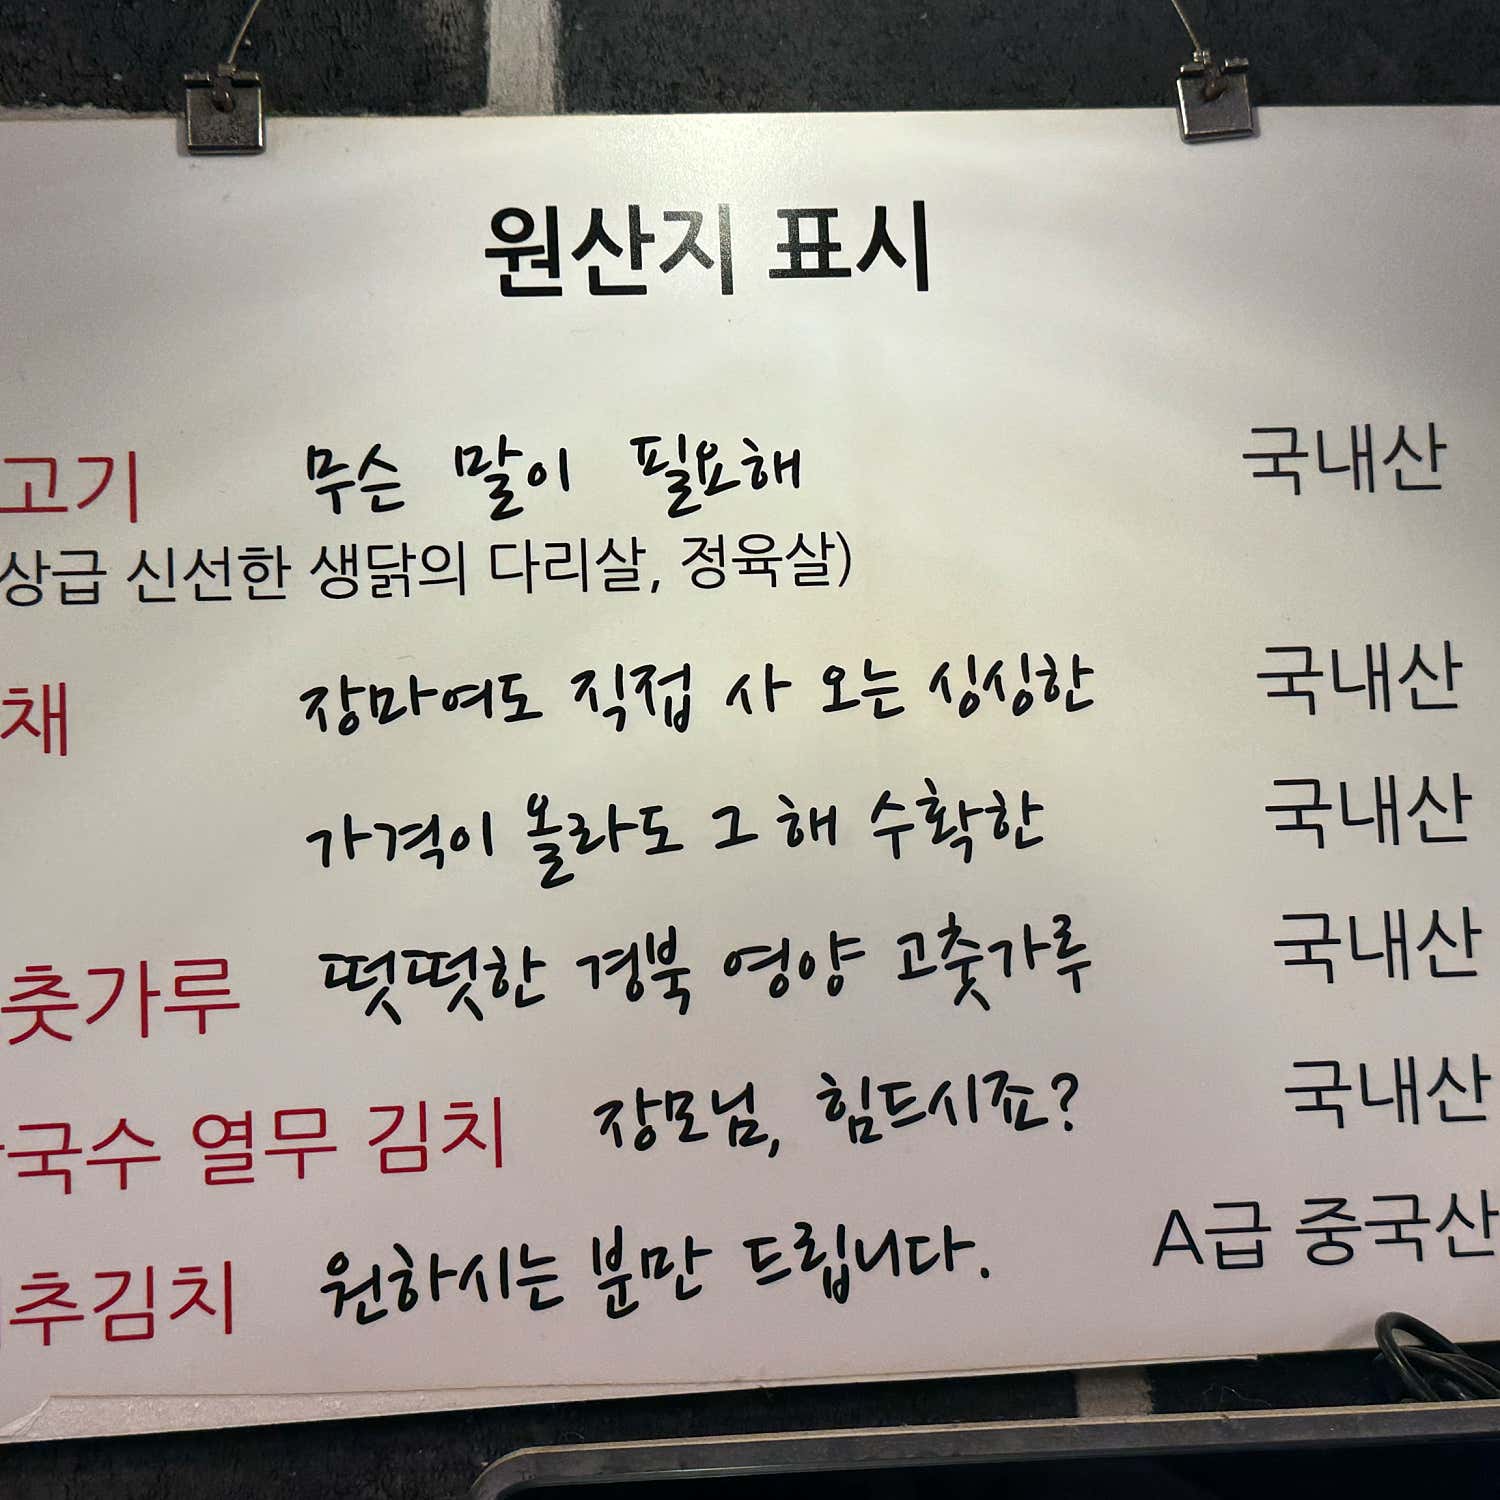 원산지 표시
고기 무슨 말이 필요해 국내산
상급 신선한 생닭의 다리살, 정육살)
채 장마여도 직접 사 오는 싱싱한 국내산
가격이 올라도 그 해 수확한 국내산
춧가루 떳떳한 경북 영양 고춧가루 국내산
국수 열무 김치 장모님, 힘드시죠? 국내산
추김치 원하시는 분만 드립니다. A급 중국산